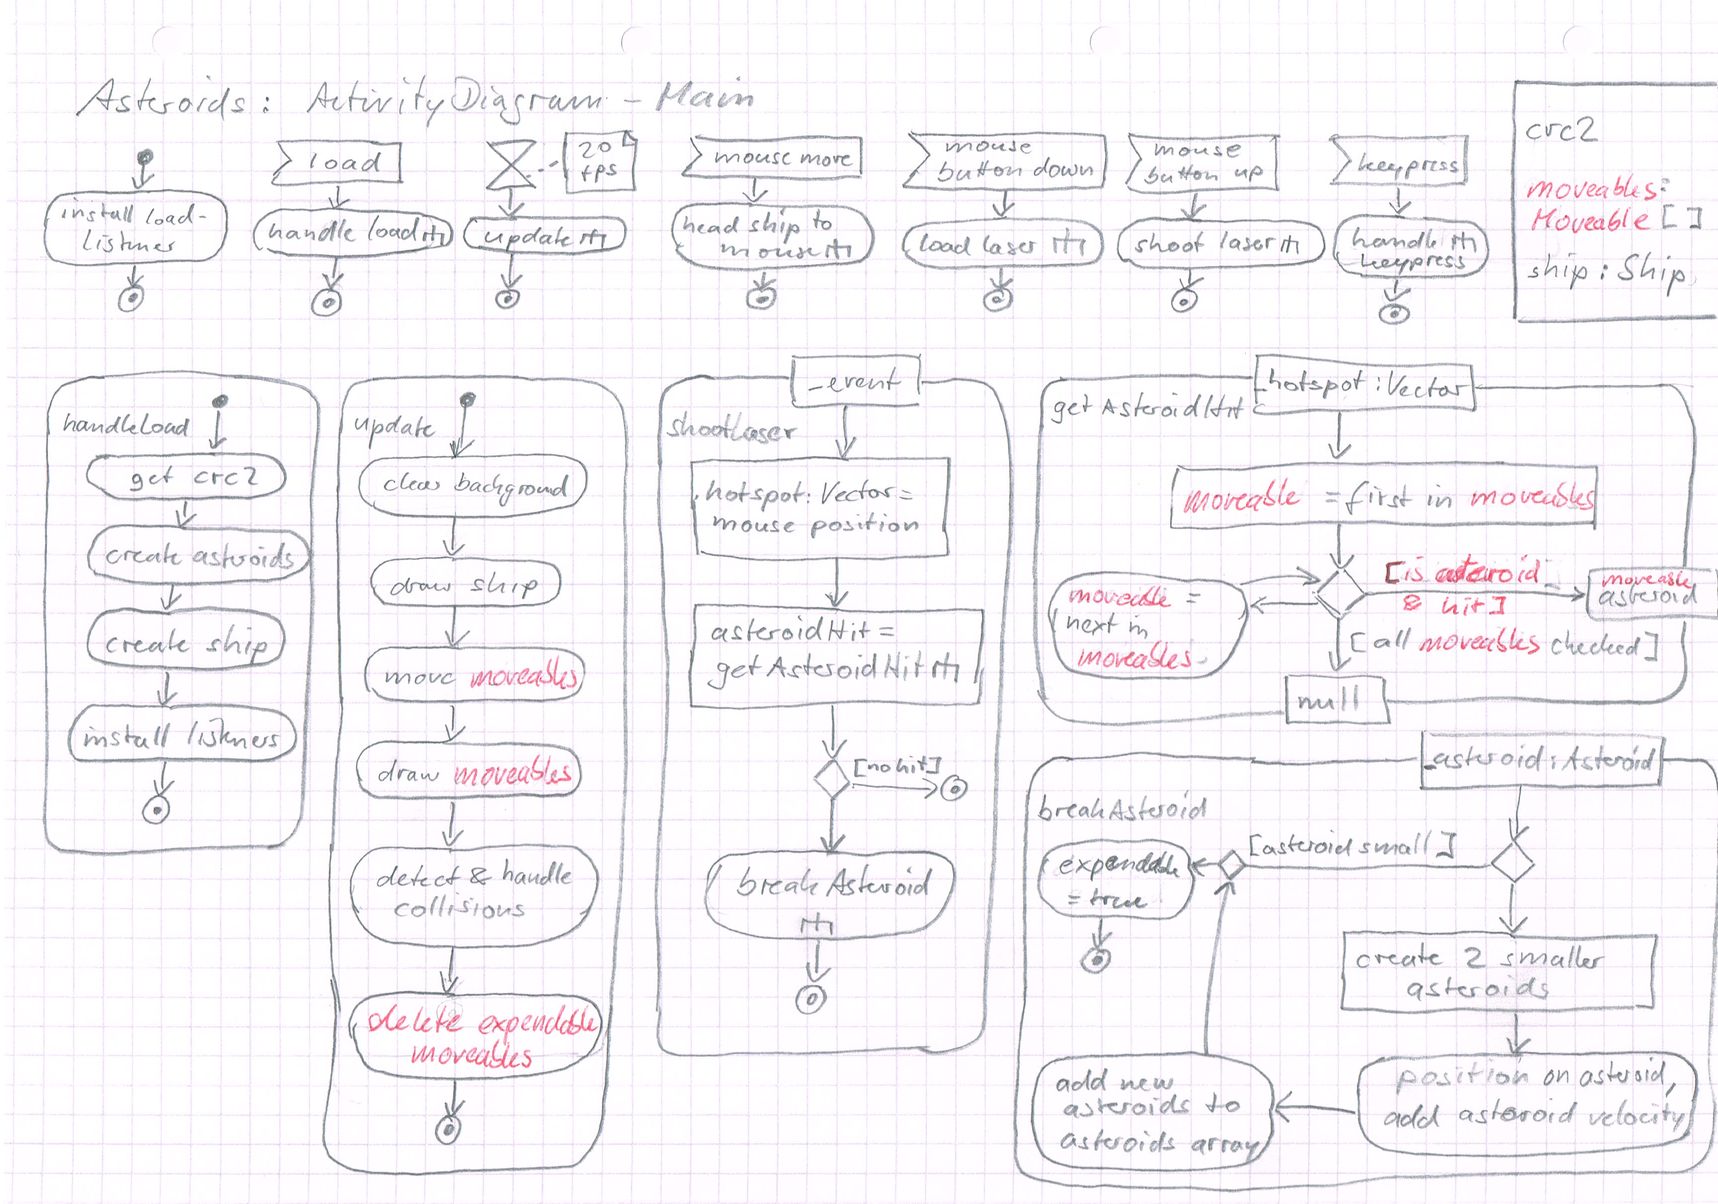 Asteroids: ActivityDiagram - Main
install load-
Listner
load
handle load
20
fps
update
mouse move
head ship to
mouse
mouse
button down
load laser
mouse
button up
shoot laser
keypress
handle
keypress
crc2
moveables:
Moveable []
ship: Ship
handleLoad
get crc2
create asteroids
create ship
install listners
update
clear background
draw ship
move moveables
draw moveables
detect & handle
collisions
delete expendable
moveables
_event
shootLaser
hotspot: Vector =
mouse position
asteroidHit =
getAsteroidHit
[no hit]
breakAsteroid
_hotspot: Vector
getAsteroidHit
moveable = first in moveables
[is asteroid
& hit]
moveable
asteroid
moveable =
next in
moveables
[all moveables checked]
null
_asteroid: Asteroid
breakAsteroid
[asteroid small]
expendable
= true
create 2 smaller
asteroids
position on asteroid,
add asteroid velocity
add new
asteroids to
asteroids array